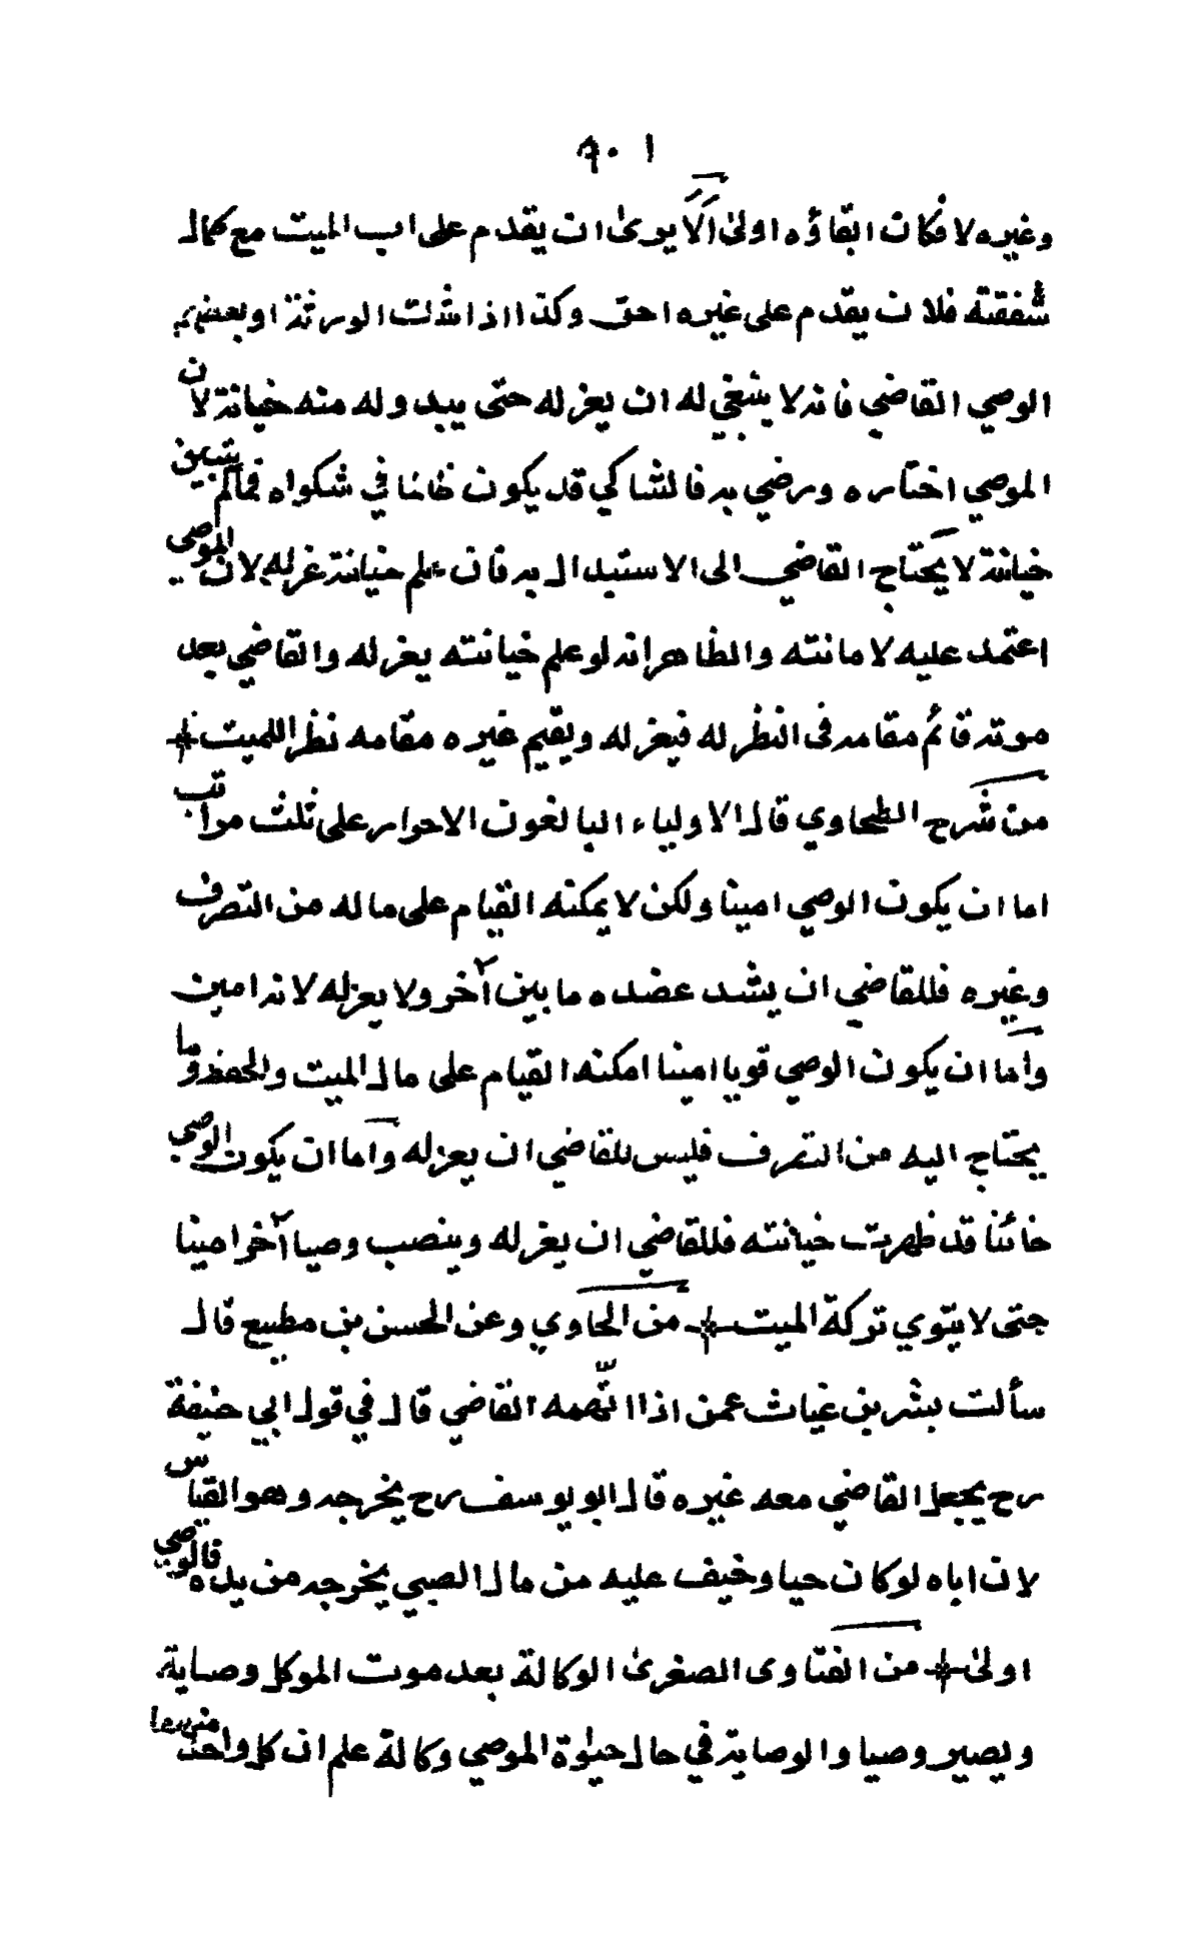 ٩٠١
وغيره لا فكان ابقاؤه اولىٰ ألا يرىٰ ان يقدم على اب الميت مع كمال
شفقته فلان يقدم على غيره احق وكذا اذا شكت الورثة او بعضهم
الوصي القاضي فانه لا ينبغي له ان يعزله حتى يبد وله منه خيانة لان
الموصي اختاره ورضي به فالشاكي قد يكون ظالما في شكواه فمالم يتبين
خيانة لا يحتاج القاضي الى الاستبدال به فان علم خيانة عزله لان الموصي
اعتمد عليه لامانته والظاهر انه لو علم خيانته يعزله والقاضي بعد
موته قائم مقامه فى النظر له فيعزله ويقيم غيره مقامه نظرا للميت
من شرح الطحاوي قال الاولياء البالغون الاحرار على ثلث مراتب
اما ان يكون الوصي امينا ولكن لا يمكنه القيام على ماله من التصرف
وغيره فللقاضي ان يشد عضده ما بين آخر ولا يعزله لانه امين
واما ان يكون الوصي قويا امينا امكنه القيام على مال الميت والحفظ وما
يحتاج اليه من التصرف فليس للقاضي ان يعزله واما ان يكون الوصي
خائنا قد ظهرت خيانته فللقاضي ان يعزله وينصب وصيا آخر امينا
حتى لا يتوي تركة الميت من الحاوي وعن الحسن بن مطيع قال
سألت بشر بن غياث عمن اذا اتّهمه القاضي قال في قول ابي حنيفة
رح يجعل القاضي معه غيره قال ابو يوسف رح يخرجه وهو القياس
لان اباه لو كان حيا وخيف عليه من مال الصبي يخرجه من يده فالوصي
اولىٰ من الفتاوى الصغرىٰ الوكالة بعد موت الموكل وصاية
ويصير وصيا والوصاية في حال حيٰوة الموصي وكالة علم ان كل واحد منهما